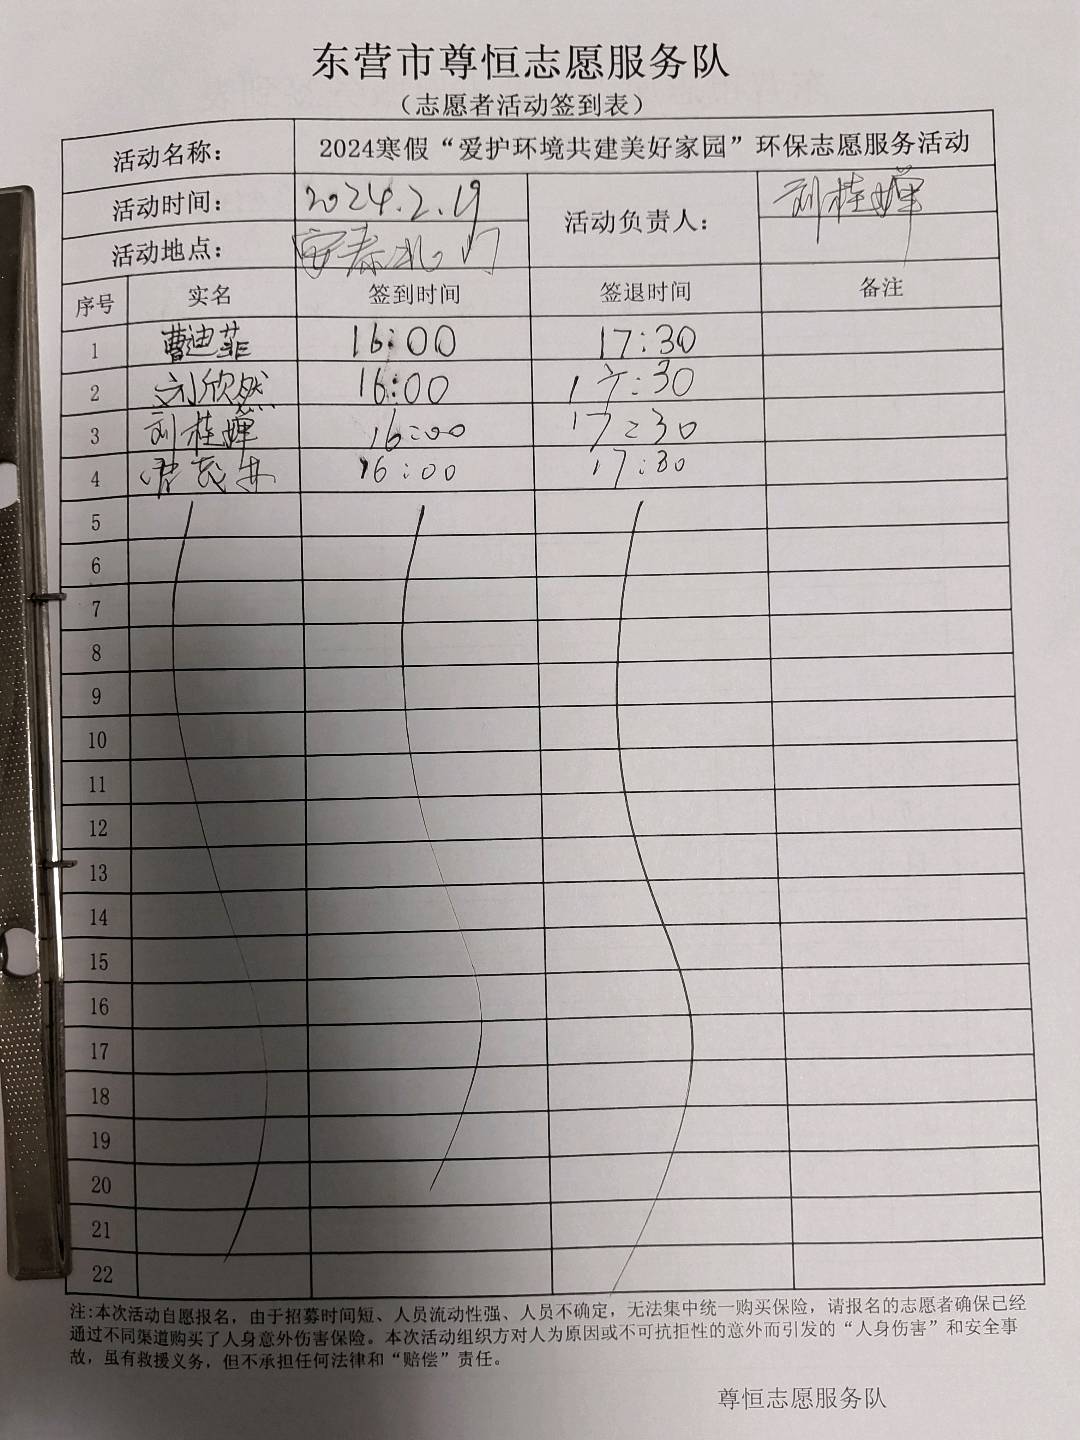 东营市尊恒志愿服务队
（志愿者活动签到表）
活动名称： 2024寒假“爱护环境共建美好家园”环保志愿服务活动
活动时间： 2024.2.19 活动负责人： 刘桂婵
活动地点： 安泰北门
序号 实名 签到时间 签退时间 备注
1 曹迪菲 16:00 17:30
2 刘欣然 16:00 17:30
3 刘桂婵 16:00 17:30
4 16:00 17:30
5
6
7
8
9
10
11
12
13
14
15
16
17
18
19
20
21
22
注:本次活动自愿报名，由于招募时间短、人员流动性强、人员不确定，无法集中统一购买保险，请报名的志愿者确保已经
通过不同渠道购买了人身意外伤害保险。本次活动组织方对人为原因或不可抗拒性的意外而引发的“人身伤害”和安全事
故，虽有救援义务，但不承担任何法律和“赔偿”责任。
尊恒志愿服务队